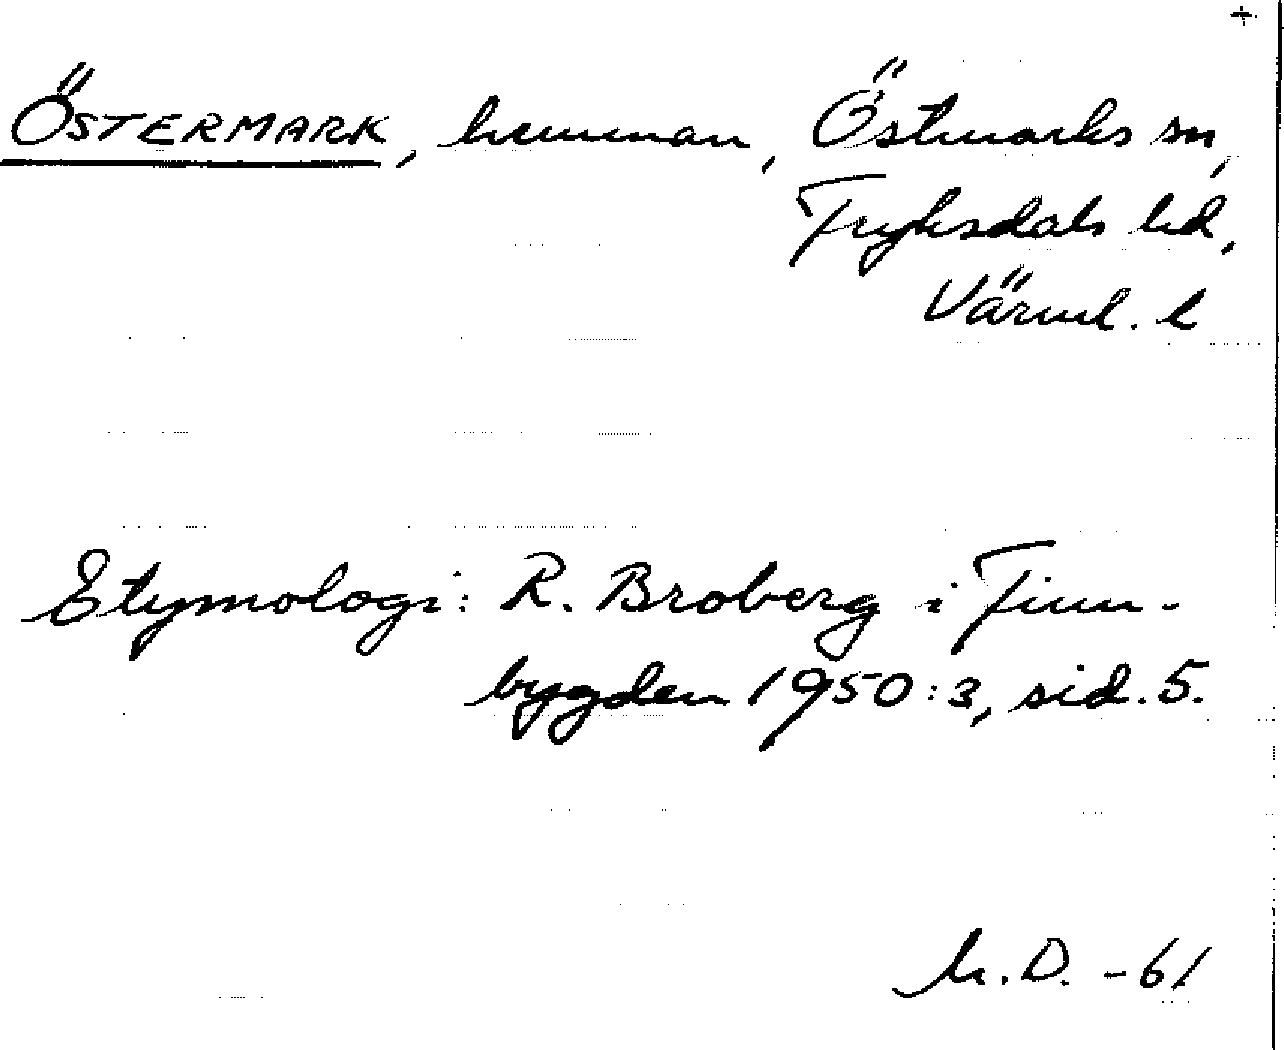 +
ÖSTERMARK, hemman, Östmarks sn,
Fryksdals hd,
Värml. l
Etymologi: R. Broberg i Finn-
bygden 1950:3, sid. 5.
h.D. -61